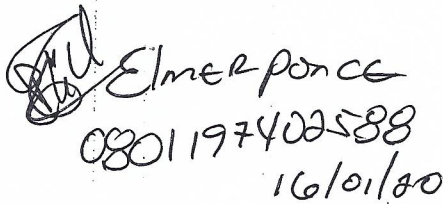 Elmer Ponce
0801197402588
16/01/20